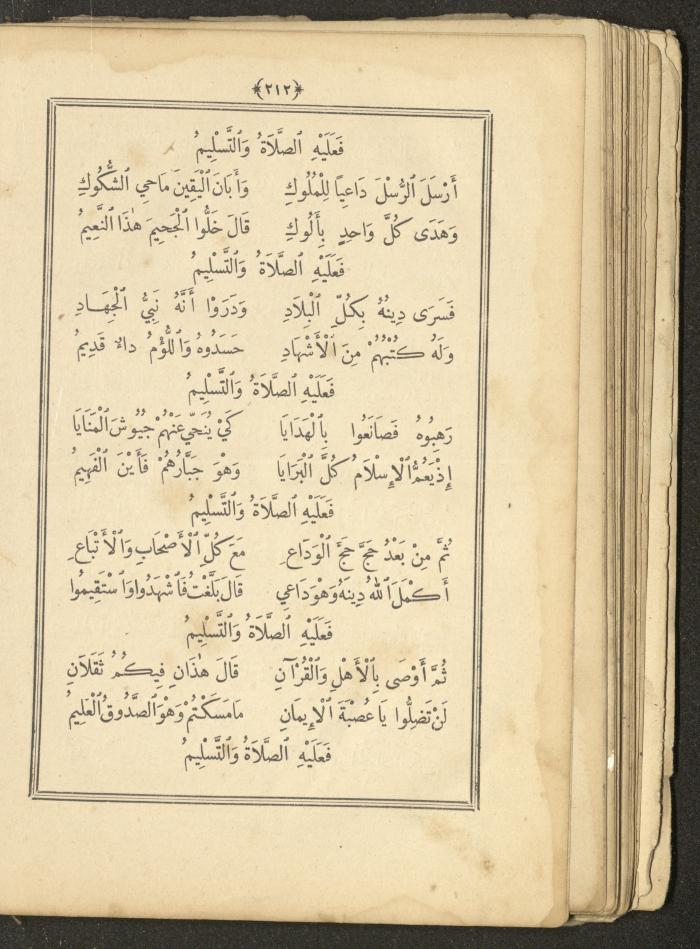 ﴿٢١٢﴾
فَعَلَيْهِ ٱلصَّلَاةُ وَٱلتَّسْلِيمُ
أَرْسَلَ ٱلرُّسْلَ دَاعِيًا لِلْمُلُوكِ وَأَبَانَ ٱلْيَقِينَ مَاحِي ٱلشُّكُوكِ
وَهَدَى كُلَّ وَاحِدٍ بِأَلُوكِ قَالَ خَلُّوا ٱلْجَحِيمَ هٰذَا ٱلنَّعِيمُ
فَعَلَيْهِ ٱلصَّلَاةُ وَٱلتَّسْلِيمُ
فَسَرَى دِينُهُ بِكُلِّ ٱلْبِلَادِ وَدَرَوْا أَنَّهُ نَبِيُّ ٱلْجِهَادِ
وَلَهُ كُتْبُهُمْ مِنَ ٱلْأَشْهَادِ حَسَدُوهُ وَٱللُّؤْمُ دَاءٌ قَدِيمُ
فَعَلَيْهِ ٱلصَّلَاةُ وَٱلتَّسْلِيمُ
رَهِبُوهُ فَصَانَعُوا بِٱلْهَدَايَا كَيْ يُنَحِّيَ عَنْهُمْ جُيُوشَ ٱلْمَنَايَا
إِذْ يَعُمُّ ٱلْإِسْلَامُ كُلَّ ٱلْبَرَايَا وَهْوَ جَبَّارُهُمْ فَأَيْنَ ٱلْفَهِيمُ
فَعَلَيْهِ ٱلصَّلَاةُ وَٱلتَّسْلِيمُ
ثُمَّ مِنْ بَعْدُ حَجَّ حَجَّ ٱلْوَدَاعِ مَعَ كُلِّ ٱلْأَصْحَابِ وَٱلْأَتْبَاعِ
أَكْمَلَ ٱللهُ دِينَهُ وَهْوَ دَاعِي قَالَ بَلَّغْتُ فَٱشْهَدُوا وَٱسْتَقِيمُوا
فَعَلَيْهِ ٱلصَّلَاةُ وَٱلتَّسْلِيمُ
ثُمَّ أَوْصَى بِٱلْأَهْلِ وَٱلْقُرْآنِ قَالَ هٰذَانِ فِيكُمُ ثَقَلَانِ
لَنْ تَضِلُّوا يَا عُصْبَةَ ٱلْإِيمَانِ مَا مَسَكْتُمْ وَهْوَ ٱلصَّدُوقُ ٱلْعَلِيمُ
فَعَلَيْهِ ٱلصَّلَاةُ وَٱلتَّسْلِيمُ